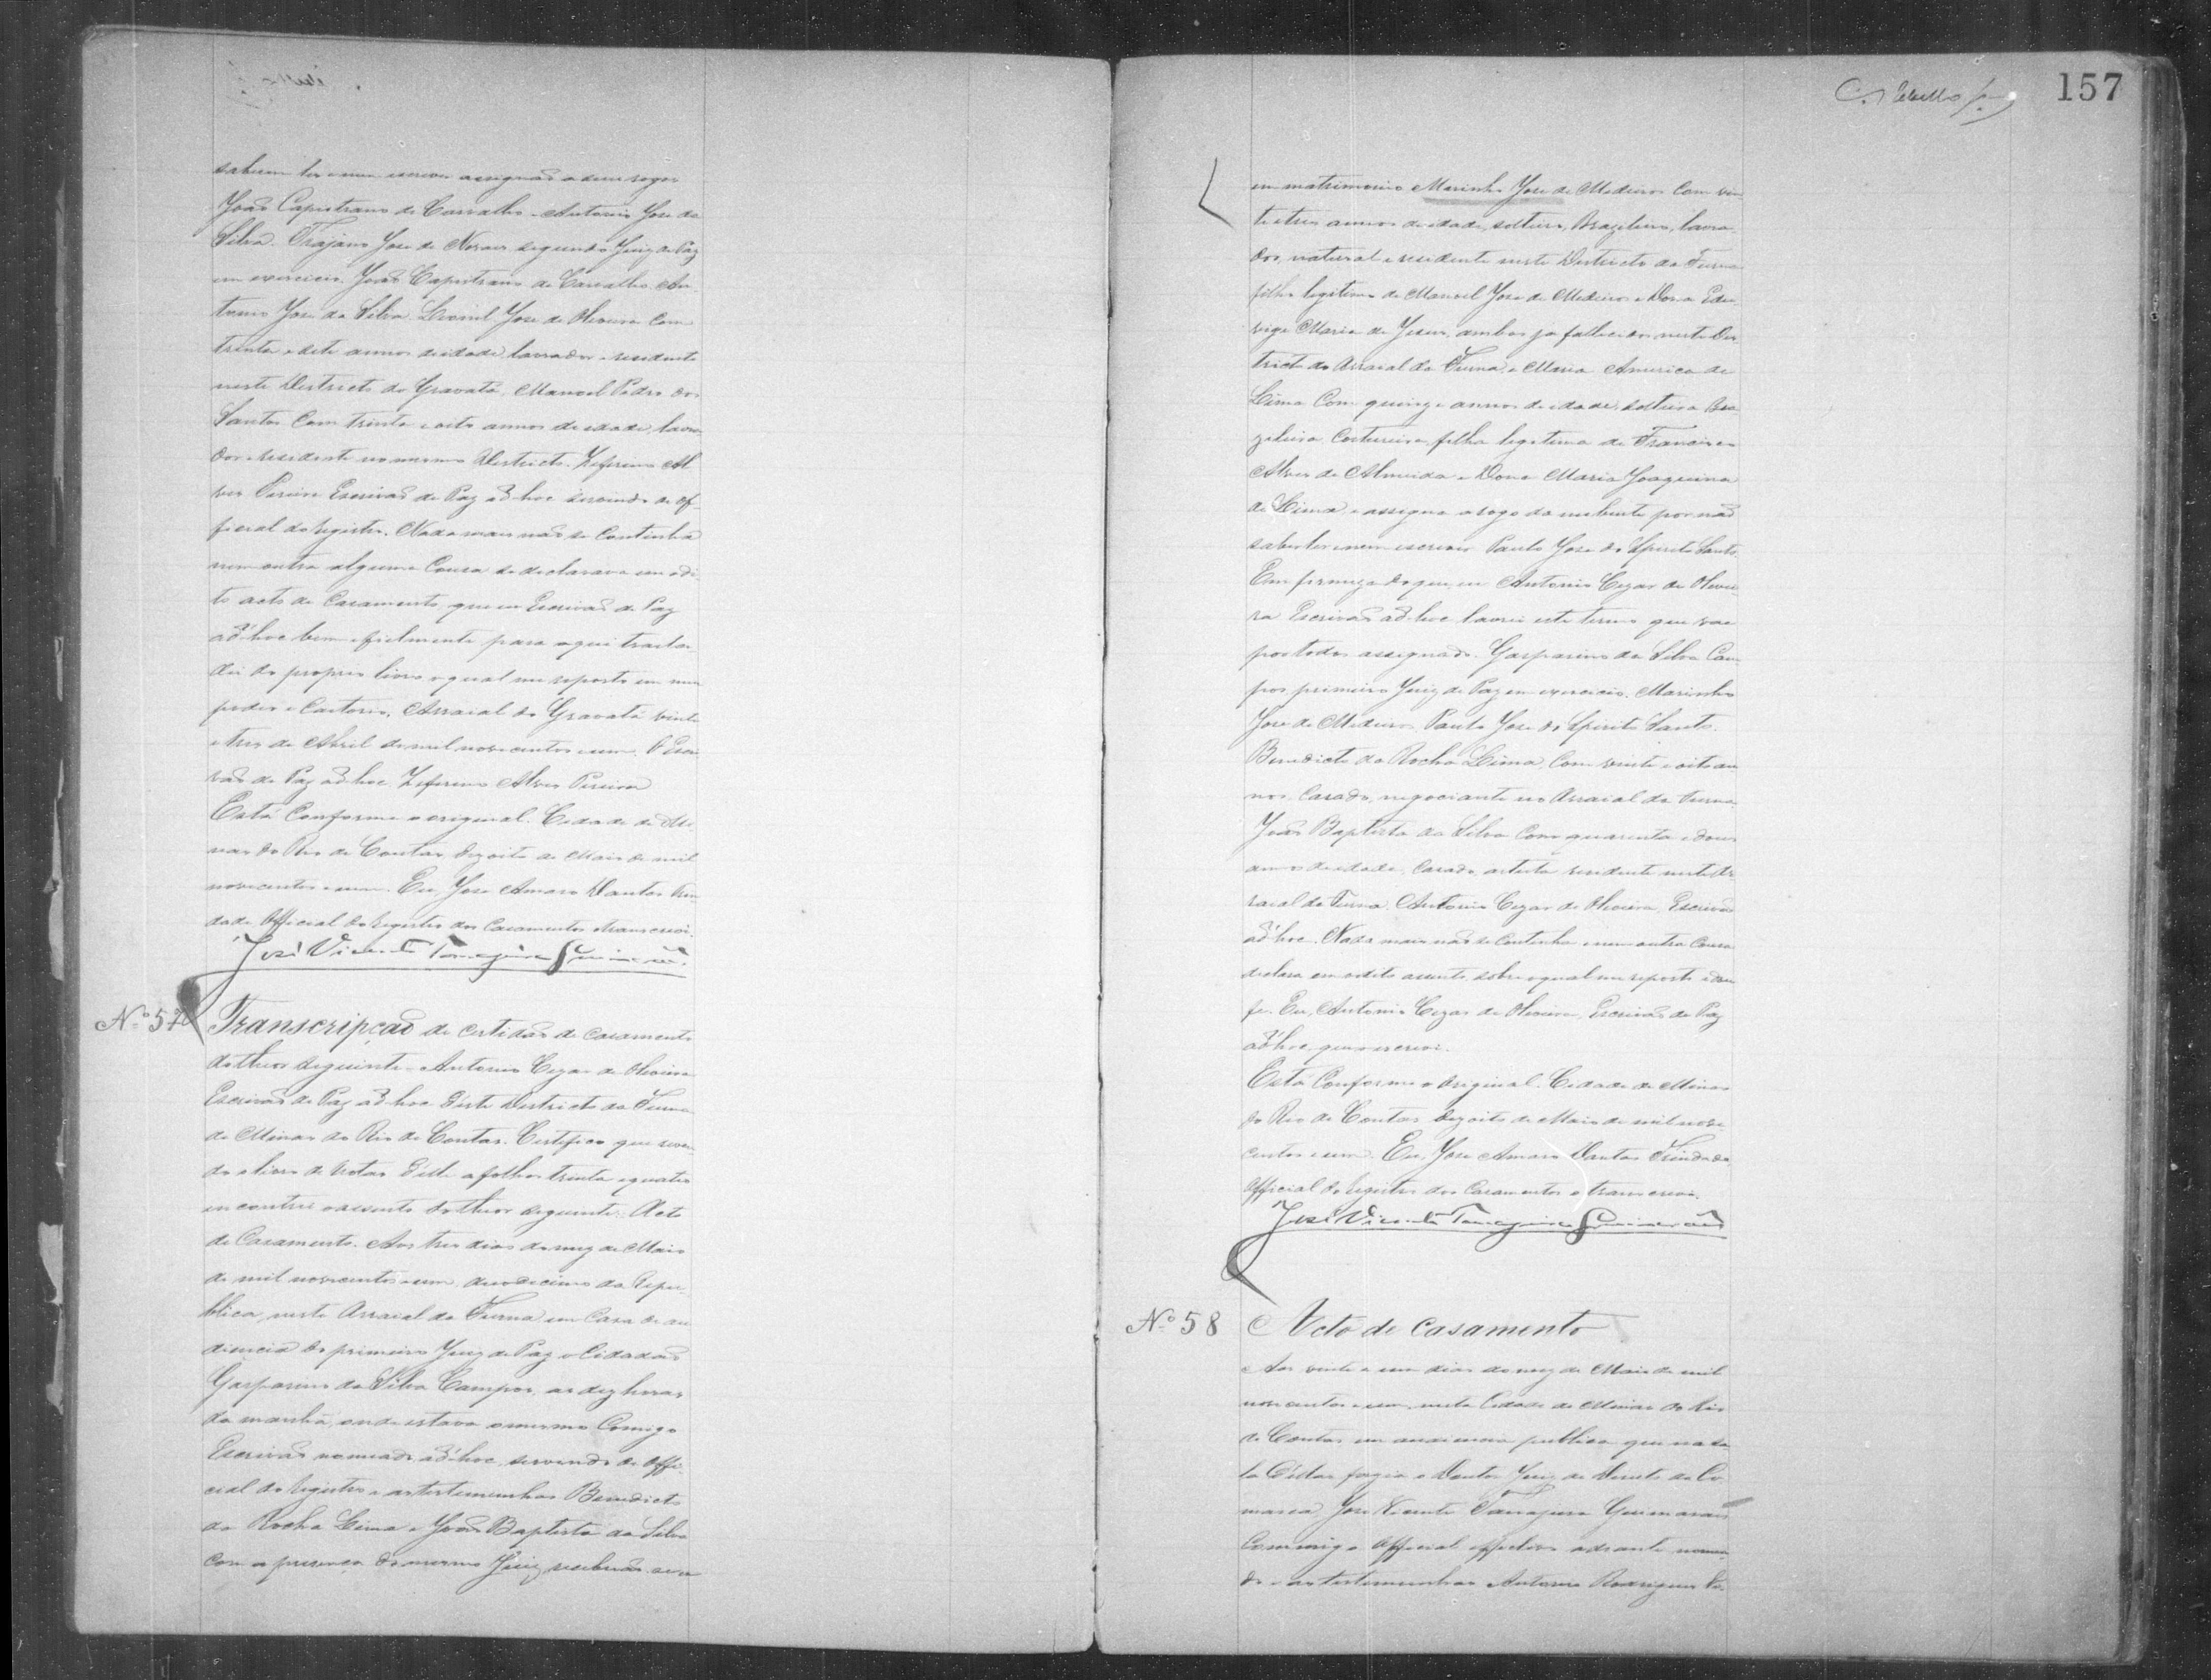 saberem ler e nem escrever assignaõ a seus rogos
João Capistrano de Carvalho. Antonio Jose da
Silva. Trajano Jose de Novaes segundo Juiz de Paz
em exercicio. João Capistrano de Carvalho. An-
tonio Jose da Silva. Leonil Jose de Oliveira com
trinta e sete annos de idade, lavrador e residente
neste Districto do Gravatá. Manoel Pedro dos
Santos com trinta e oito annos de idade, lavra-
dor e residente no mesmo Districto. Zeferino Al-
ves Pereira Escrivaõ de Paz ad-hoc servindo de of-
ficial do registro. Nada mais naõ se continha
nem outra alguma cousa se declarava em o di-
to acto de casamento que eu Escrivaõ de Paz
ad-hoc bem e fielmente para aqui traslа-
dei do proprio livro o qual me reporto em meu
poder e Cartorio. Arraial do Gravatá vinte
e tres de Abril de mil novecentos e um. O Escri-
vaõ de Paz ad hoc Zeferino Alves Pereira
Está conforme o original. Cidade de Mi-
nas do Rio de Contas, dezoito de Maio de mil
novecentos e um. Eu, Jose Amaro Dantas Trin-
dade Official do registro dos casamentos o transcrevi.
José Vicente Tanajura Guimarães
Nº 57 Transcripçaõ de certidaõ de casamento
do theor seguinte. Antonio Cezar de Oliveira
Escrivaõ de Paz ad-hoc d'este Districto da Furna
de Minas do Rio de Contas. Certifico que reven-
do o livro de notas d'elle a folhas trinta e quatro
encontrei o assento do theor seguinte: Acto
de Casamento. Aos tres dias do mez de Maio
de mil novecentos e um, duodecimo da Repu-
blica, neste Arraial da Furna em Casa de au-
diencia do primeiro Juiz de Paz o Cidadaõ
Gasparino da Silva Campos, as dez horas
da manhã, onde estava o mesmo Comigo
Escrivaõ nomeado ad-hoc, servindo de Offi-
cial do registro e as testemunhas Benedicto
da Rocha Lima e João Baptista da Silva
com a presença do mesmo Juiz, receberaõ-se
157
em matrimonio Marinho Jose de Medeiros com vin-
te e tres annos de idade, solteiro, Brazileiro, lavra-
dor natural e residente neste Districto da Furna
filho legitimo de Manoel Jose de Medeiros e Dona Edu-
vige Maria de Jesus, ambos ja fallecidos neste Dis-
tricto do Arraial da Furna, e Maria America de
Lima com quinze annos de idade, solteira Bra-
zileira, Costureira, filha legitima de Francisco
Alves de Almeida e Dona Maria Joaquina
de Lima, e assigna a rogo da nubente por naõ
saber ler e nem escrever Paulo Jose do Spirito Santo.
Em firmeza do que, eu Antonio Cezar de Olivei-
ra Escrivaõ ad-hoc, lavrei este termo que vae
por todos assignado. Gasparino da Silva Cam-
pos primeiro Juiz de Paz em exercicio. Marinho
Jose de Medeiros. Paulo Jose do Spirito Santo.
Benedicto da Rocha Lima, com vinte e oito an-
nos, casado, negociante no Arraial da Furna
João Baptista da Silva com quarenta e dous
annos de idade, casado, artista residente neste Ar-
raial da Furna. Antonio Cezar de Oliveira, Escrivaõ
ad-hoc. Nada mais naõ se continha e nem outra cousa
declara em o dito assento sobre o qual me reporto e dou
fe. Eu, Antonio Cezar de Oliveira, Escrivaõ de Paz
ad hoc, que o escrevi.
Está Conforme o Original. Cidade de Minas
do Rio de Contas, dezoito de Maio de mil nove-
centos e um. Eu, Jose Amaro Dantas Trindade
Official do registro dos casamentos o transcrevi.
José Vicente Tanajura Guimarães
Nº 58 Acto de casamento
Aos vinte e um dias do mez de Maio de mil
novecentos e um, nesta Cidade de Minas do Rio
de Contas em audiencia publica que na sa-
la d'ellas fazia o Doutor Juiz de Direito da Co-
marca Jose Vicente Tanajura Guimarães
Commigo Official effectivo adiante nomea-
do e as testemunhas Antonio Rodrigues